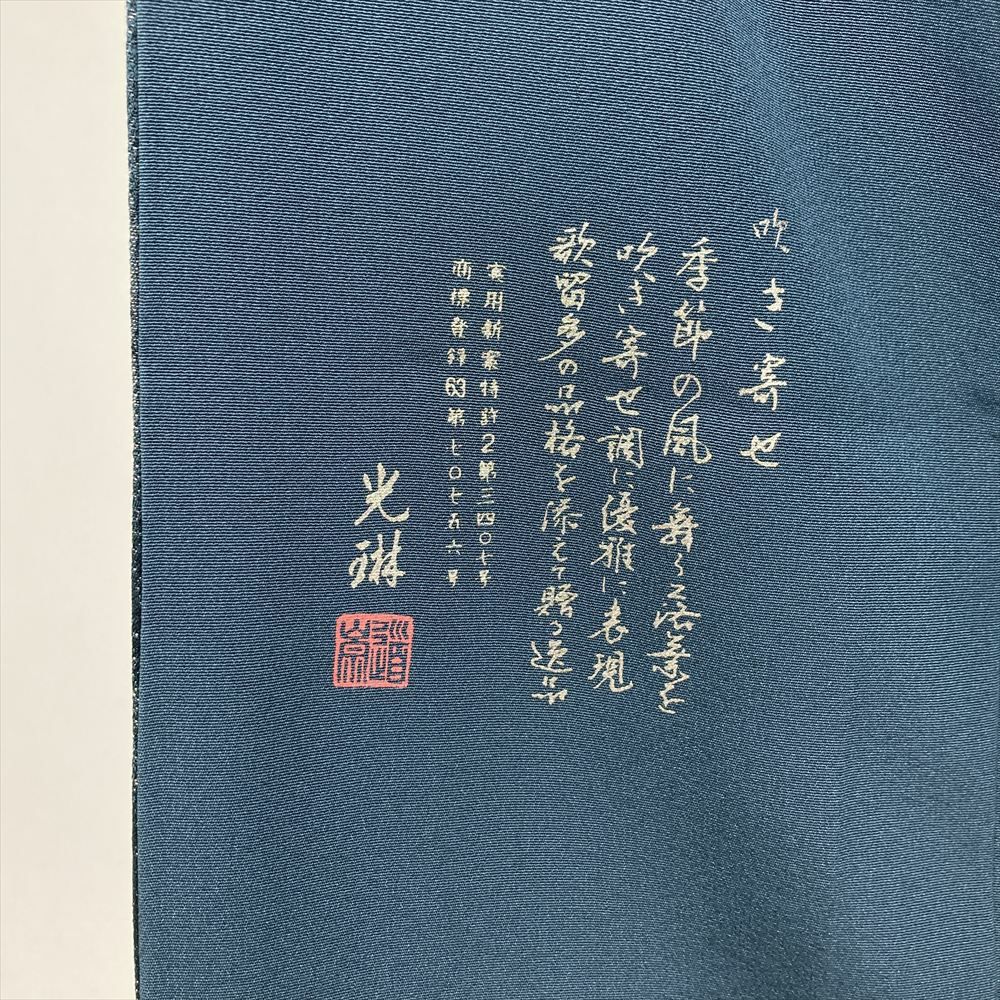 吹き寄せ
季節の風に舞う落葉を
吹き寄せ調に優雅に表現
歌留多の品格を添えて贈る逸品
実用新案特許2第三四〇七号
商標登録63第七〇七五六号
光琳